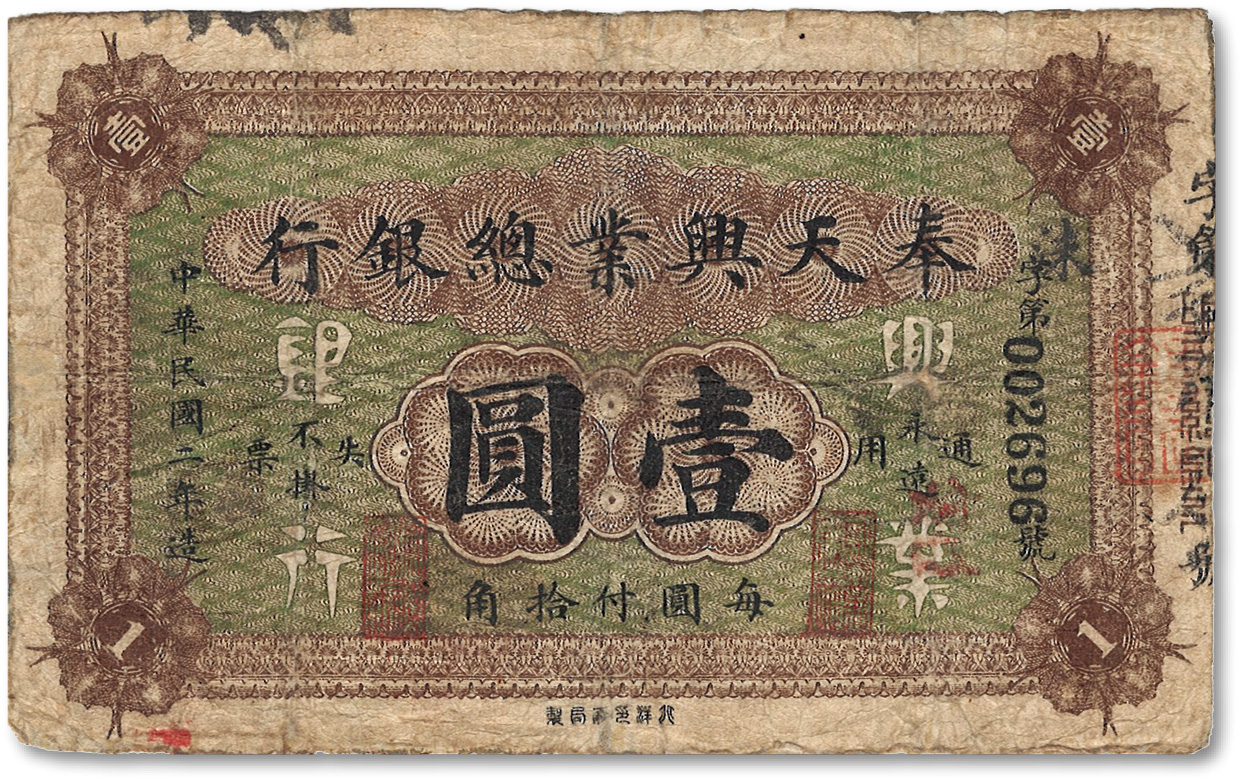 奉天興業總銀行
未字第0026966號
興業
銀行
壹圓
永遠通用
失票不掛
每圓付拾角
中華民國二年造
壹
壹
1
1